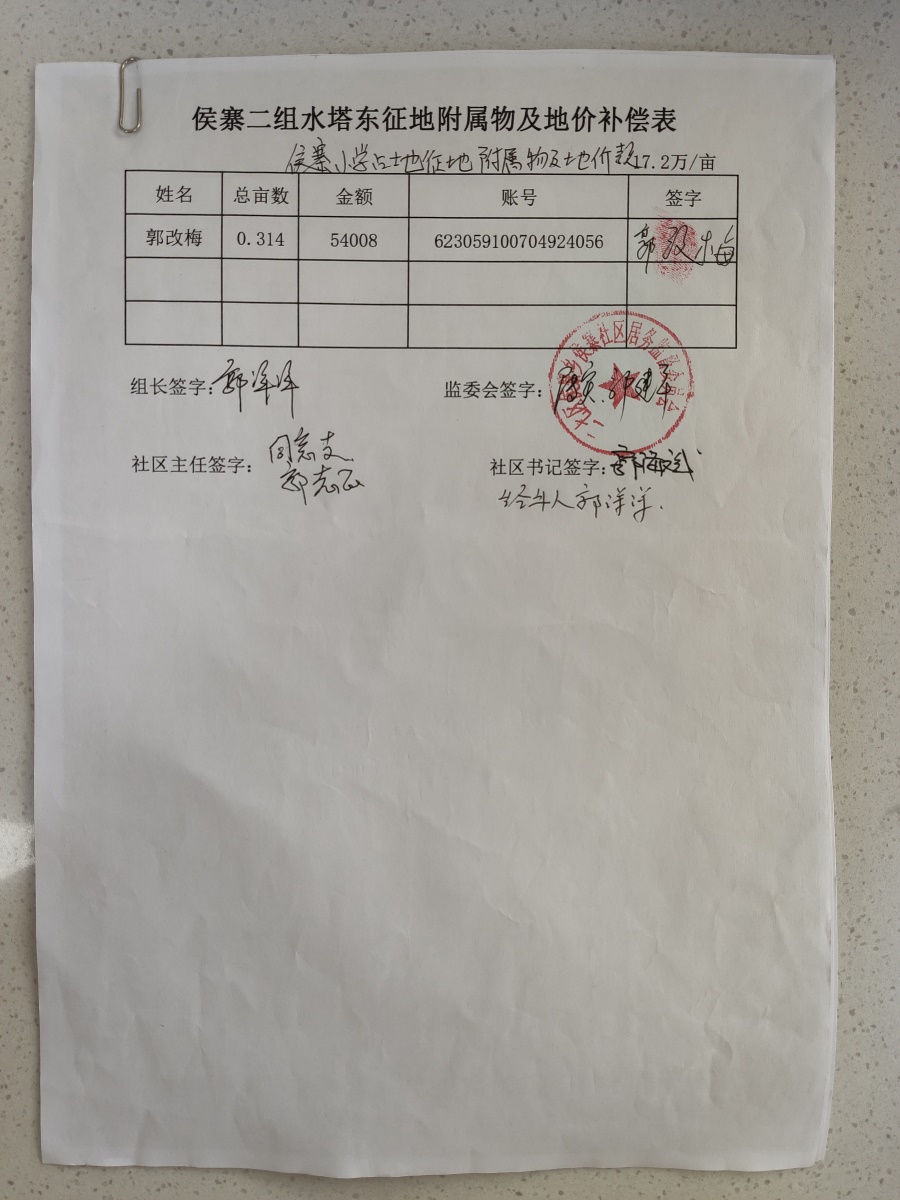 侯寨二组水塔东征地附属物及地价补偿表
侯寨小学占土地征地附属物及土地价款17.2万/亩
姓名 总亩数 金额 账号 签字
郭改梅 0.314 54008 623059100704924056 郭改梅
组长签字：郭洋洋 监委会签字：
侯寨社区居务监督委员会
社区主任签字：
郭志正
社区书记签字：
经手人郭洋洋.